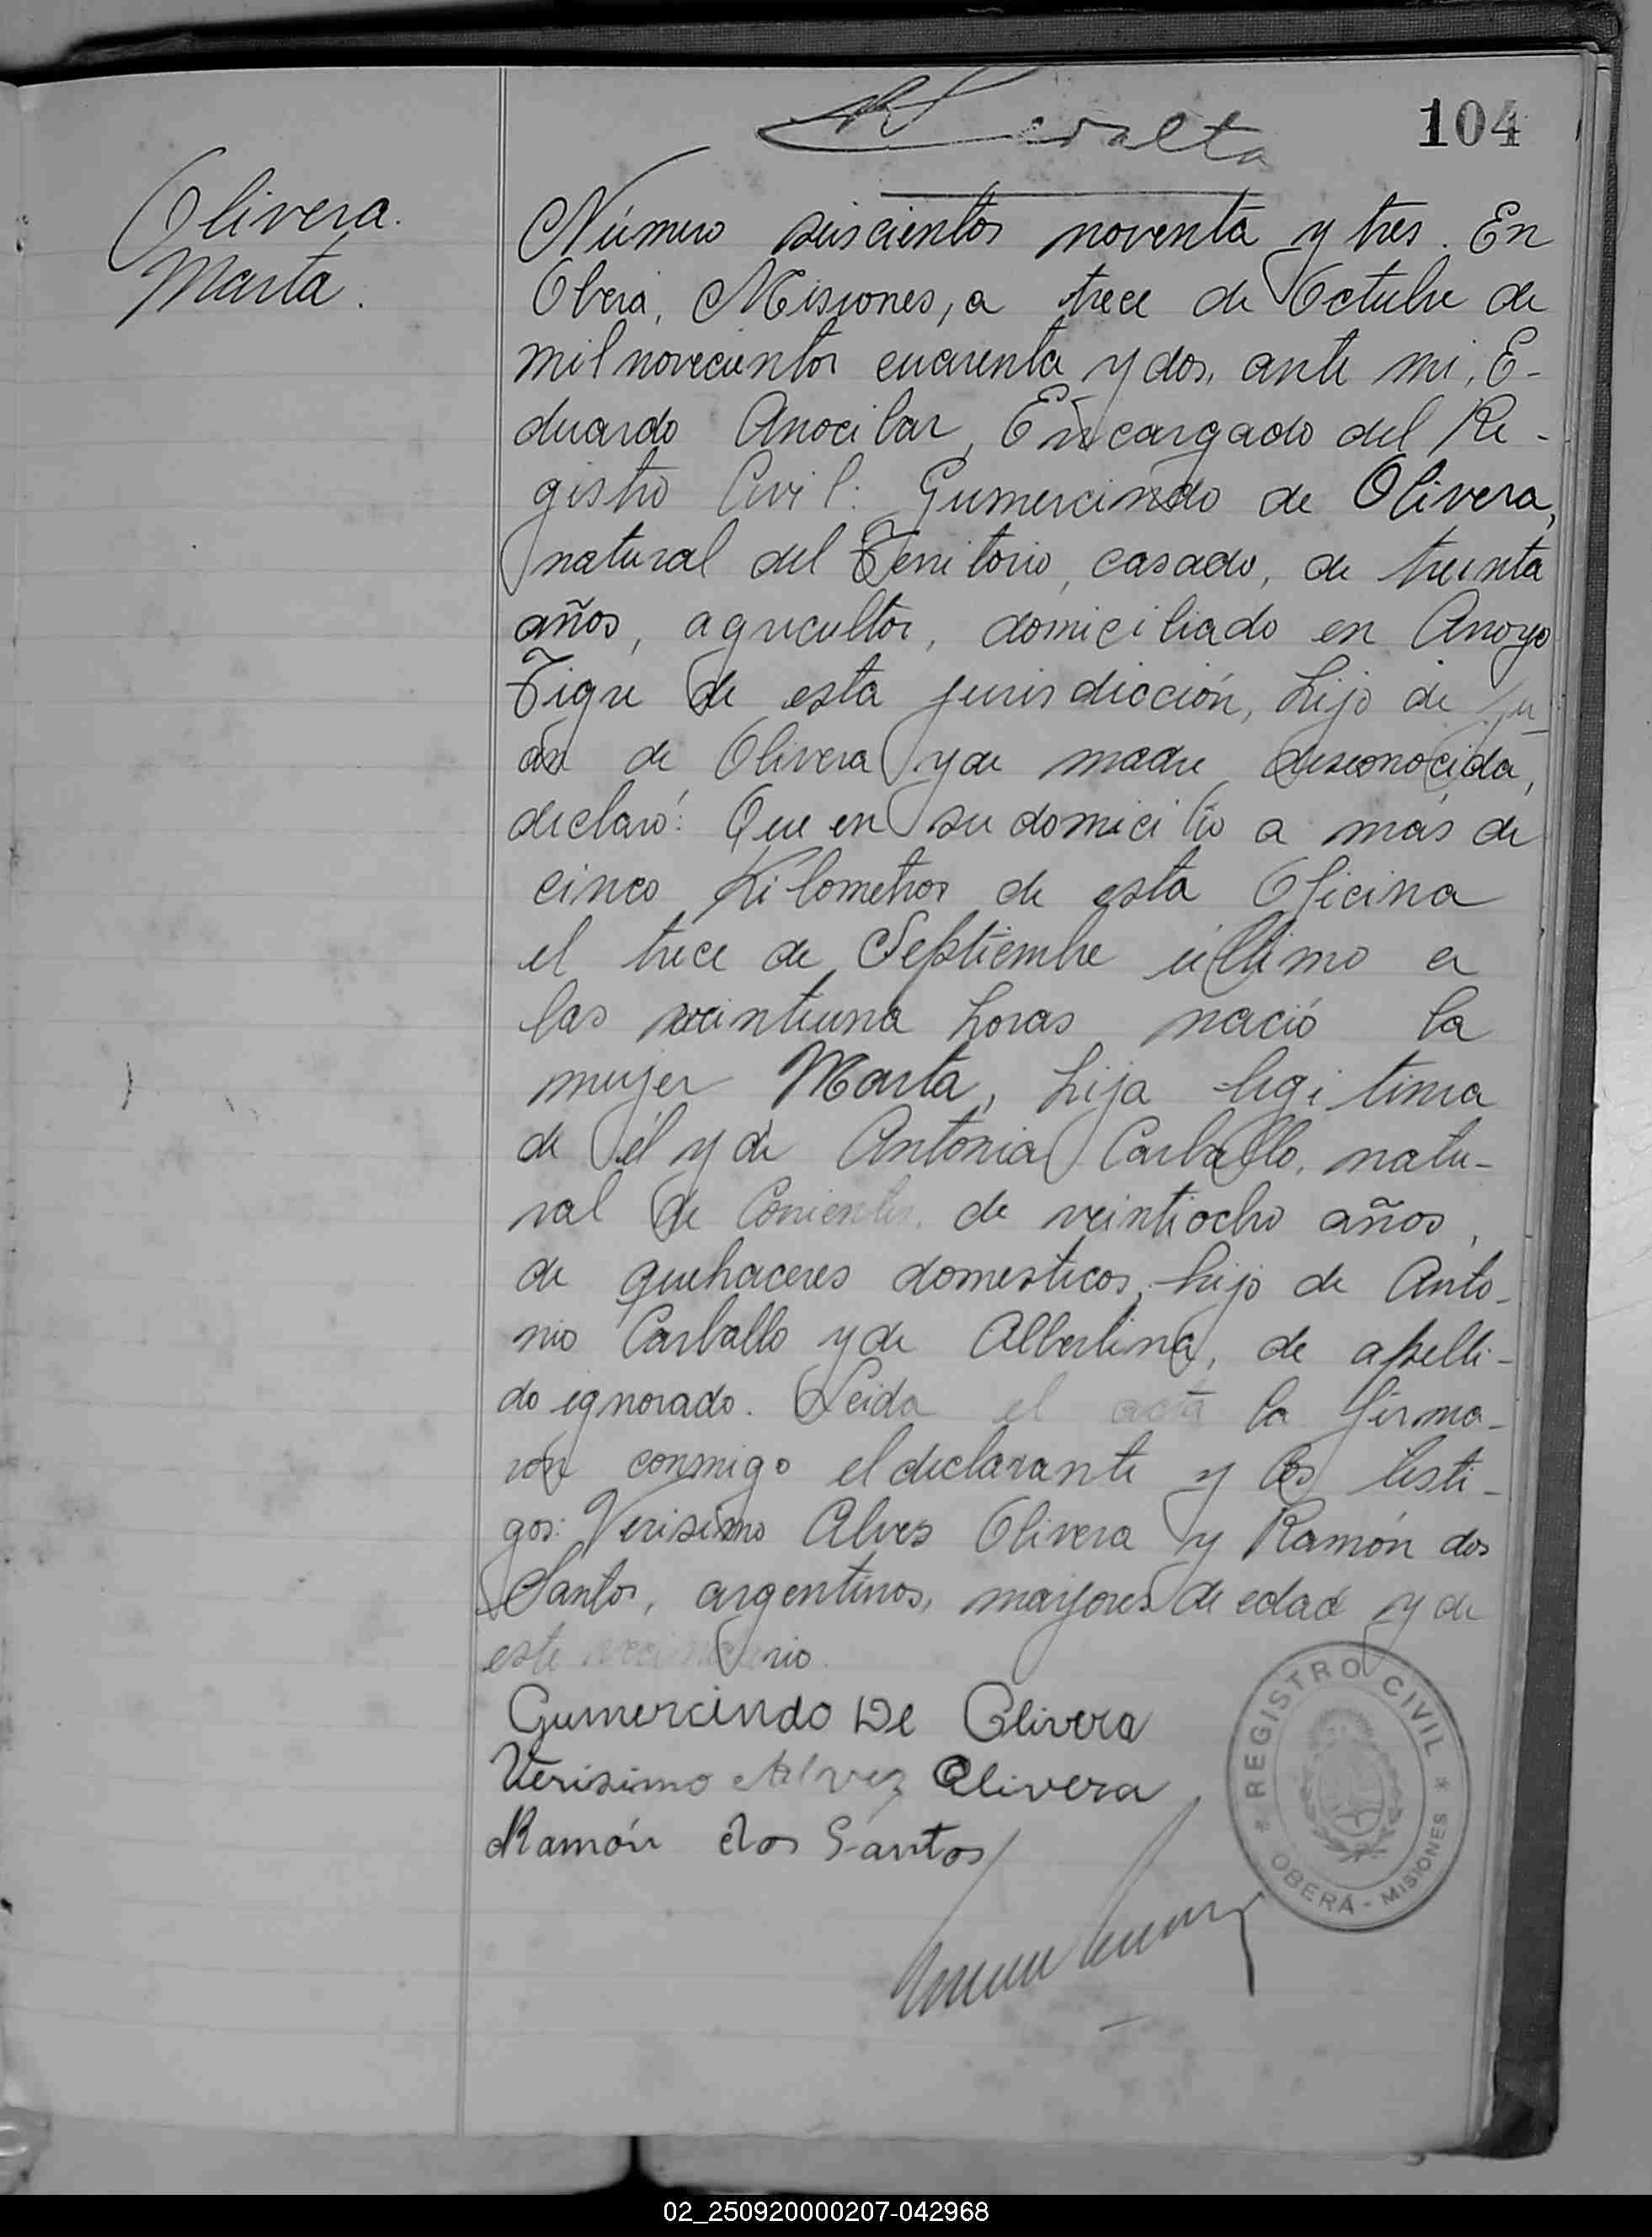 104
Olivera.
Marta.
Número seiscientos noventa y tres. En
Oberá, Misiones, a trece de Octubre de
mil novecientos cuarenta y dos, ante mi, E-
duardo Encargado del Re-
gistro Civil: Gumercindo de Olivera,
natural del Territorio, casado, de treinta
años, agricultor, domiciliado en Arroyo
Tigre de esta jurisdicción, hijo de Ju-
an de Olivera y de madre desconocida,
declaró: Que en su domicilio a más de
cinco Kilometros de esta Oficina
el trece de Septiembre último a
las veintiuna horas nació la
mujer Marta, hija legitima
de él y de Antonia Carballo, natu-
ral de Corrientes, de veintiocho años,
de quehaceres domesticos, hijo de Anto-
nio Carballo y de Albertina, de apelli-
do ignorado. Leida el acta la firma-
ron conmigo el declarante y los testi-
gos: Verisimo Alves Olivera y Ramón dos
Santos, argentinos, mayores de edad y de
este
Gumercindo De Olivera
Verisimo Alvez Olivera
Ramón dos Santos
* REGISTRO CIVIL *
OBERÁ - MISIONES
02_250920000207-042968